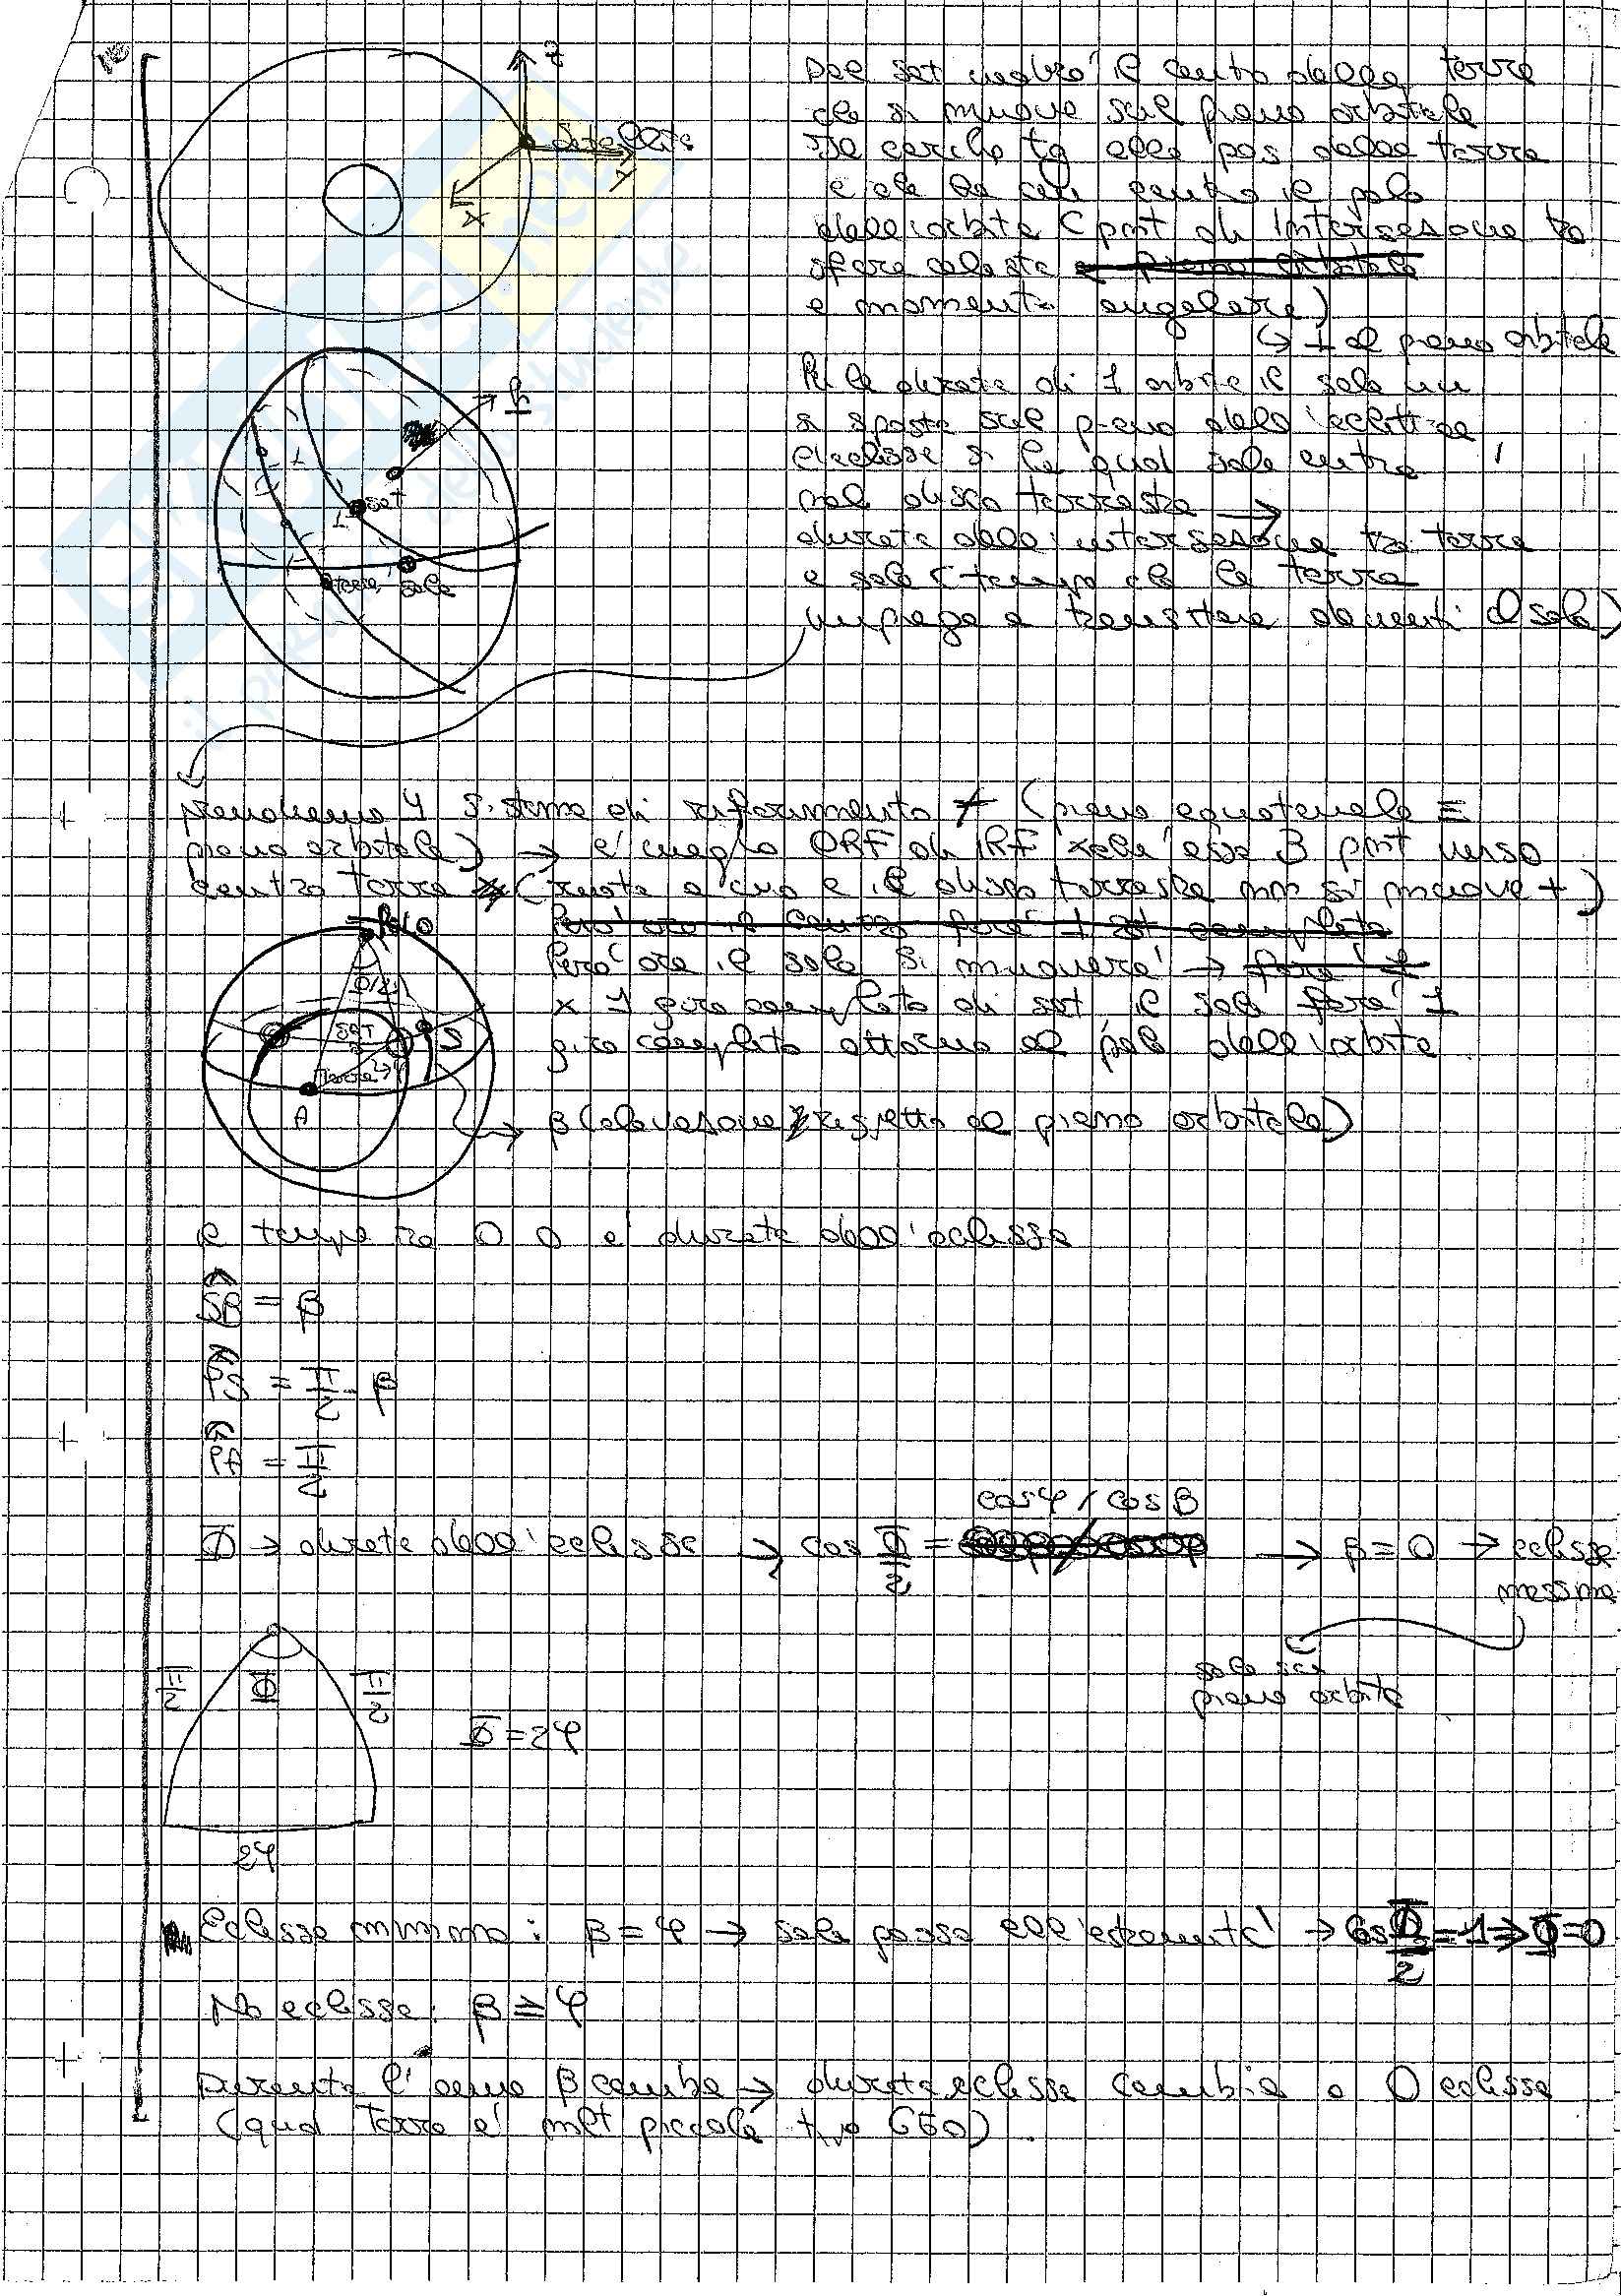 z
Satellite
y
x
Dal sat vedrò il centro della terra
che si muove sul piano orbitale
Il cerchio tg alla pos della terra
e che ha come centro il polo
dell'orbita (pnt di intersezione tra
sfera celeste e piano orbitale
e momento angolare)
→ ⊥ al piano orbitale
h
Sat
Terra
Sole
Per la durata di 1 orbita il sole nn
si sposta sul piano dell'eclittica,
L'eclisse si ha qnd sole entra
nel disco terrestre →
durata della intersezione tra terra
e sole (tempo che la terra
impiega a transitare davanti al sole)
prendiamo 1 sistema di riferimento ≠ (piano equatoriale ≡
piano orbitale) → è meglio ORF di IRF xchè asse 3 pnt verso
centro terra (ruota e il disco terrestre nn si muove +)
Però ora il centro farà 1 completo
Però ora il sole si muoverà → farà 1
x 1 giro completo di sat, il sole farà 1
giro completo attorno al polo dell'orbita
Polo
Φ/2
Sat
S
Terra
φ
A
→ β (elevazione rispetto al piano orbitale)
il tempo tra O O è durata dell'eclisse
SB = β
PS = π/2 - β
PA = π/2
cosφ / cosβ
Φ → durata dell'eclisse → cos Φ/2 = → β = 0 → eclisse
massima
sole su
piano orbita
π/2 Φ π/2
Φ = 2φ
2φ
Eclisse minima: β = φ → sole passa all'estremità → cos Φ/2 = 1 ⇒ Φ = 0
No eclisse: β ≥ φ
Durante l'anno β cambia → durata eclisse cambia o 0 eclisse
(qnd Terra è mlt piccola tipo GEO).